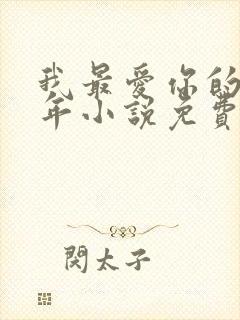 我最爱你的
年小说免費
閔太子